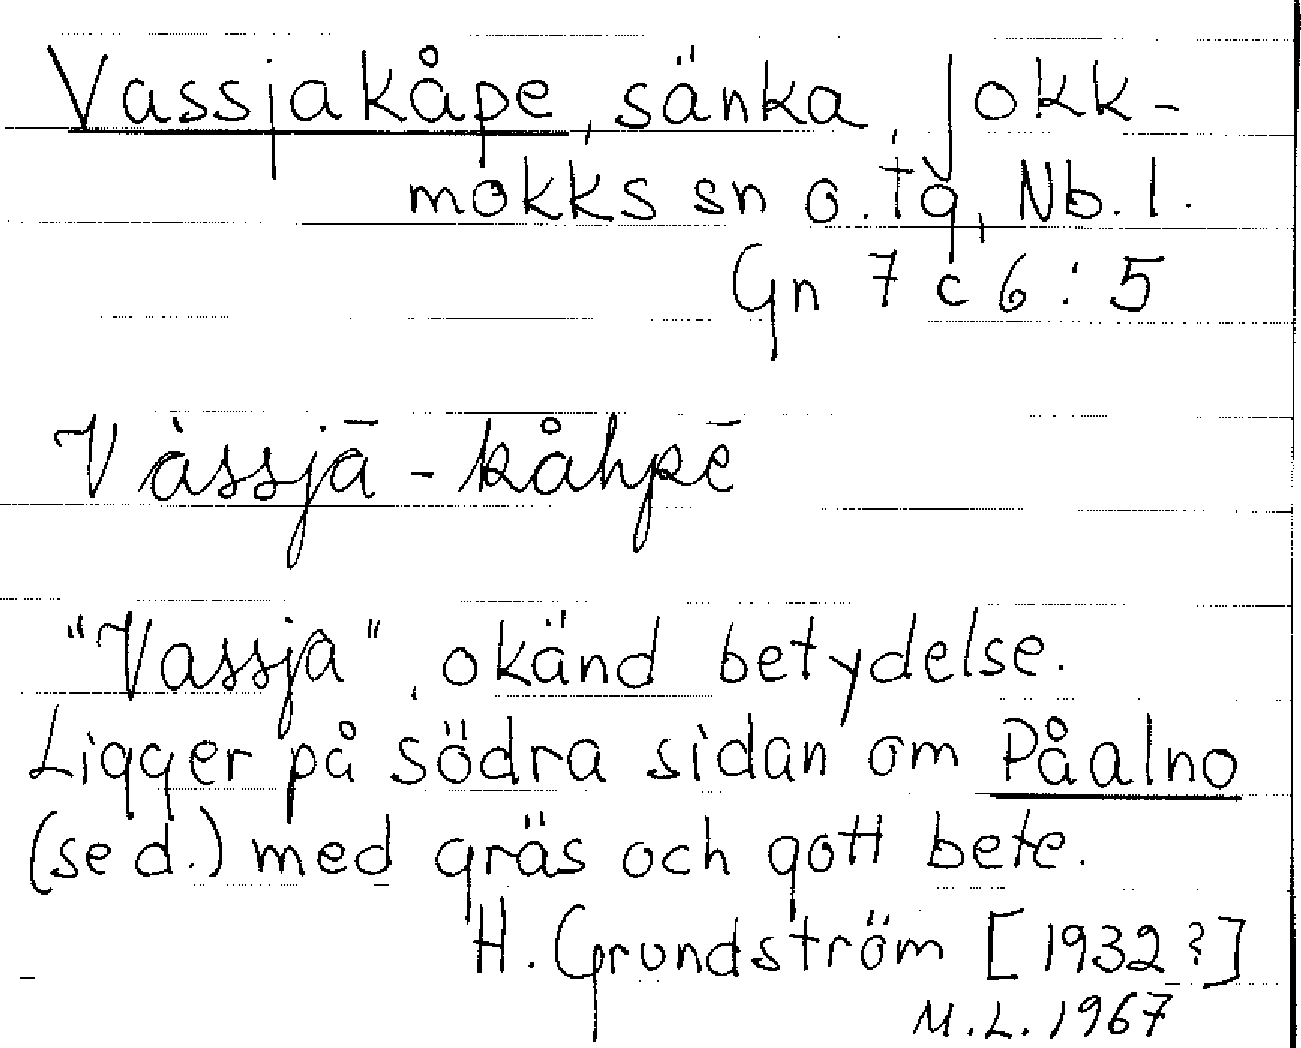 Vassjakåpe, sänka, Jokk-
mokks sn o. tg, Nb. l.
Gn 7 c 6 : 5
Vȧssjā - kåhpē
"Vassja", okänd betydelse.
Ligger på södra sidan om Påalno
(se d.) med gräs och gott bete.
H. Grundström [1932?]
M.L. 1967